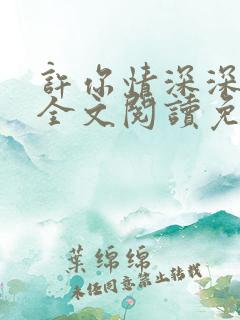 許你情深深
全文閱讀免
葉綿綿
未經同意禁止轉載